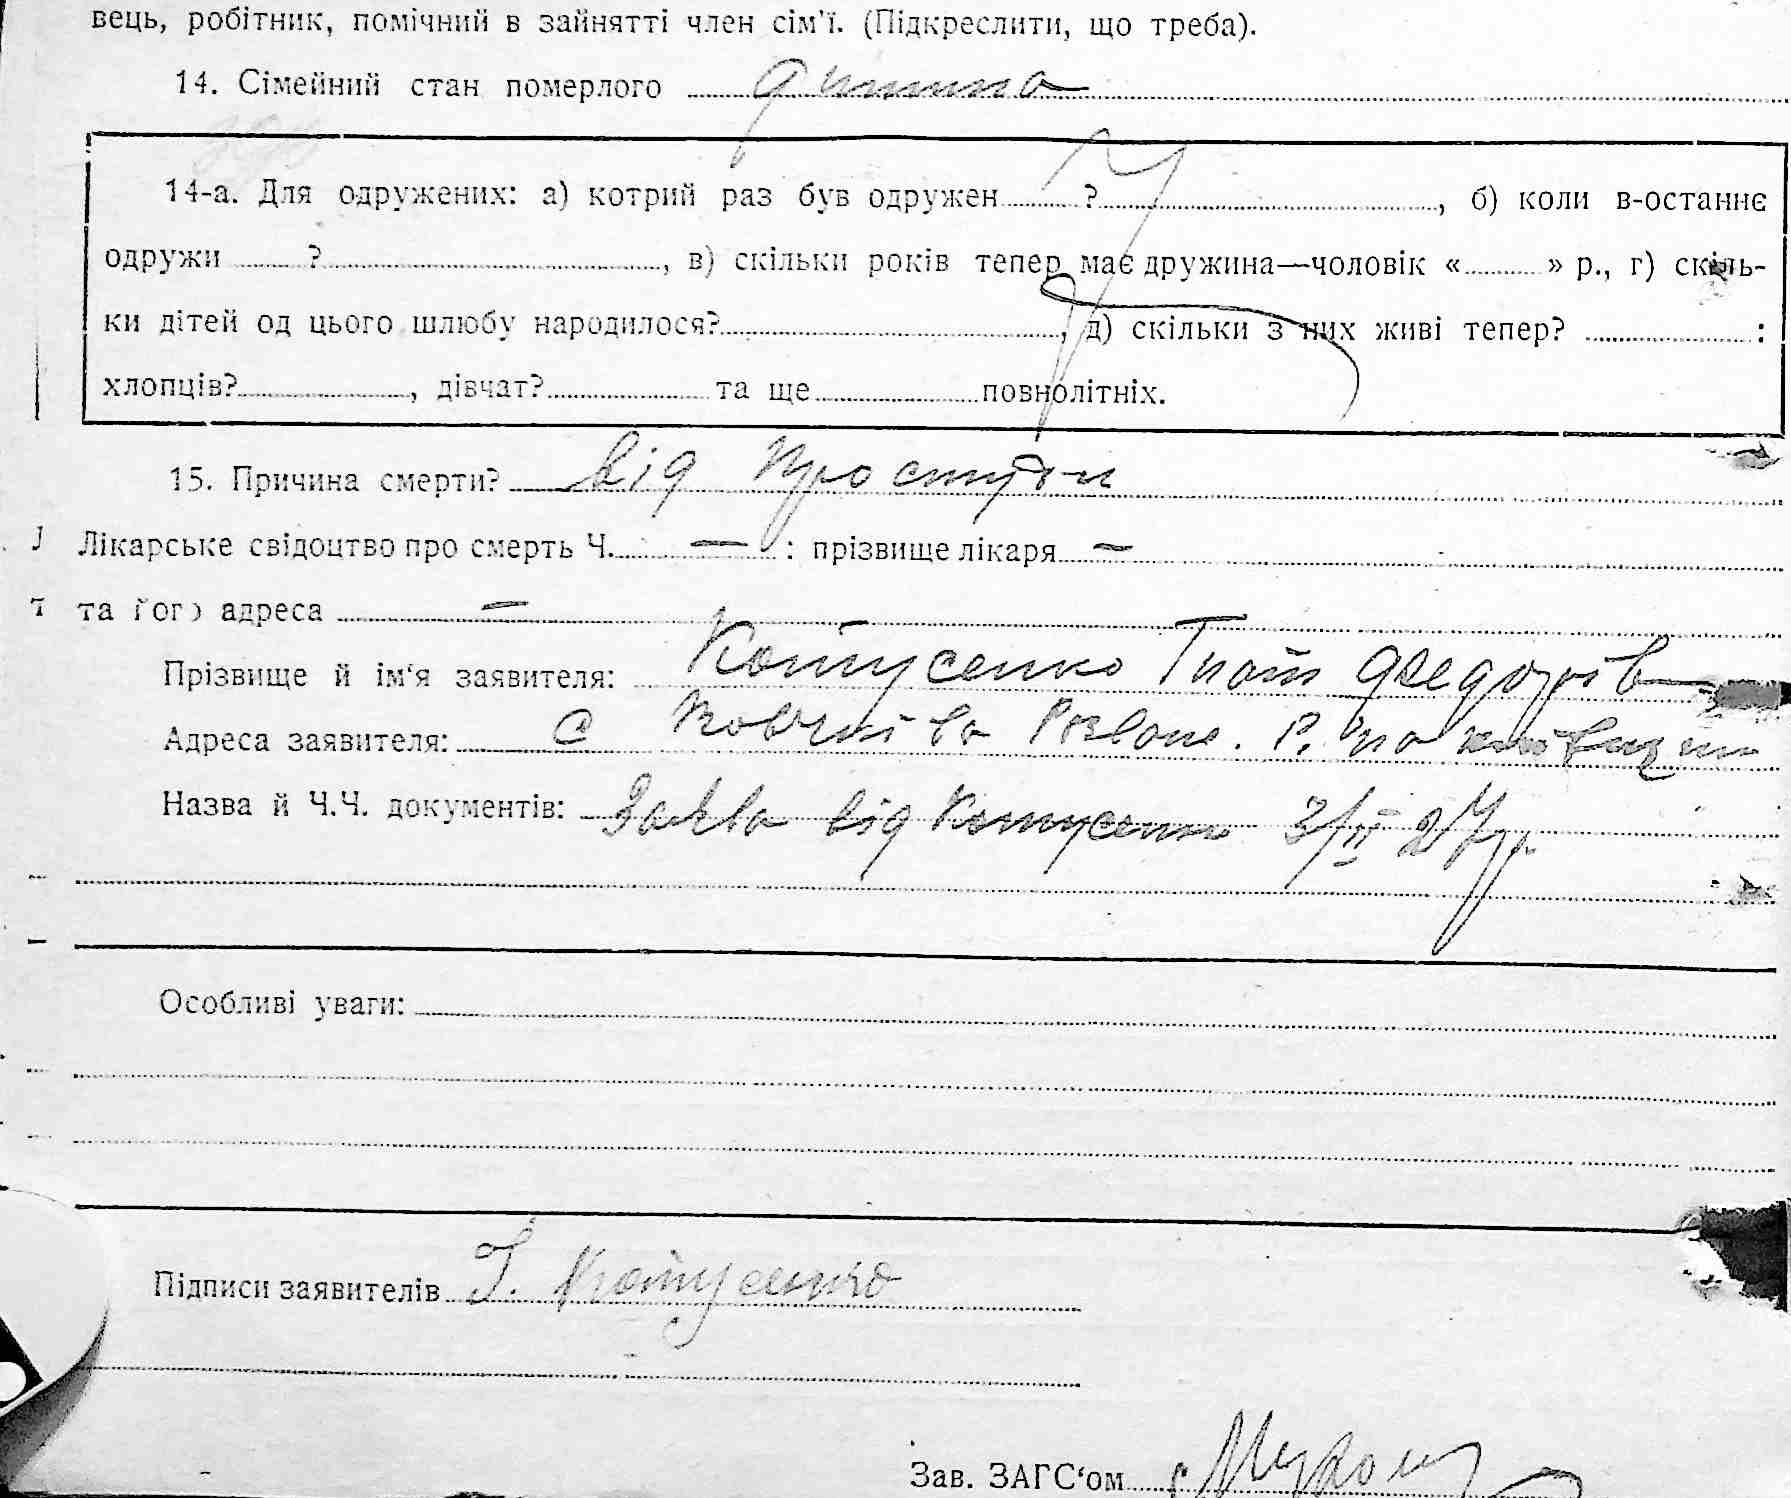 вець, робітник, помічний в зайнятті член сім'ї. (Підкреслити, що треба).
14. Сімейний стан померлого дитина
14-а. Для одружених: а) котрий раз був одружен ? , б) коли в-останнє
одружи ? , в) скільки років тепер має дружина—чоловік « » р., г) скіль-
ки дітей од цього шлюбу народилося? , д) скільки з них живі тепер? :
хлопців? , дівчат? та ще повнолітніх.
15. Причина смерти? від простуди
Лікарське свідоцтво про смерть Ч. — : прізвище лікаря —
та його адреса —
Прізвище й ім‘я заявителя: Котусенко Гнат Федорів
Адреса заявителя: с Ковчків
Назва й Ч.Ч. документів: Заява від Котусенко 3/II 27р.
Особливі уваги:
Підписи заявителів Г. Котусенко
Зав. ЗАГС‘ом